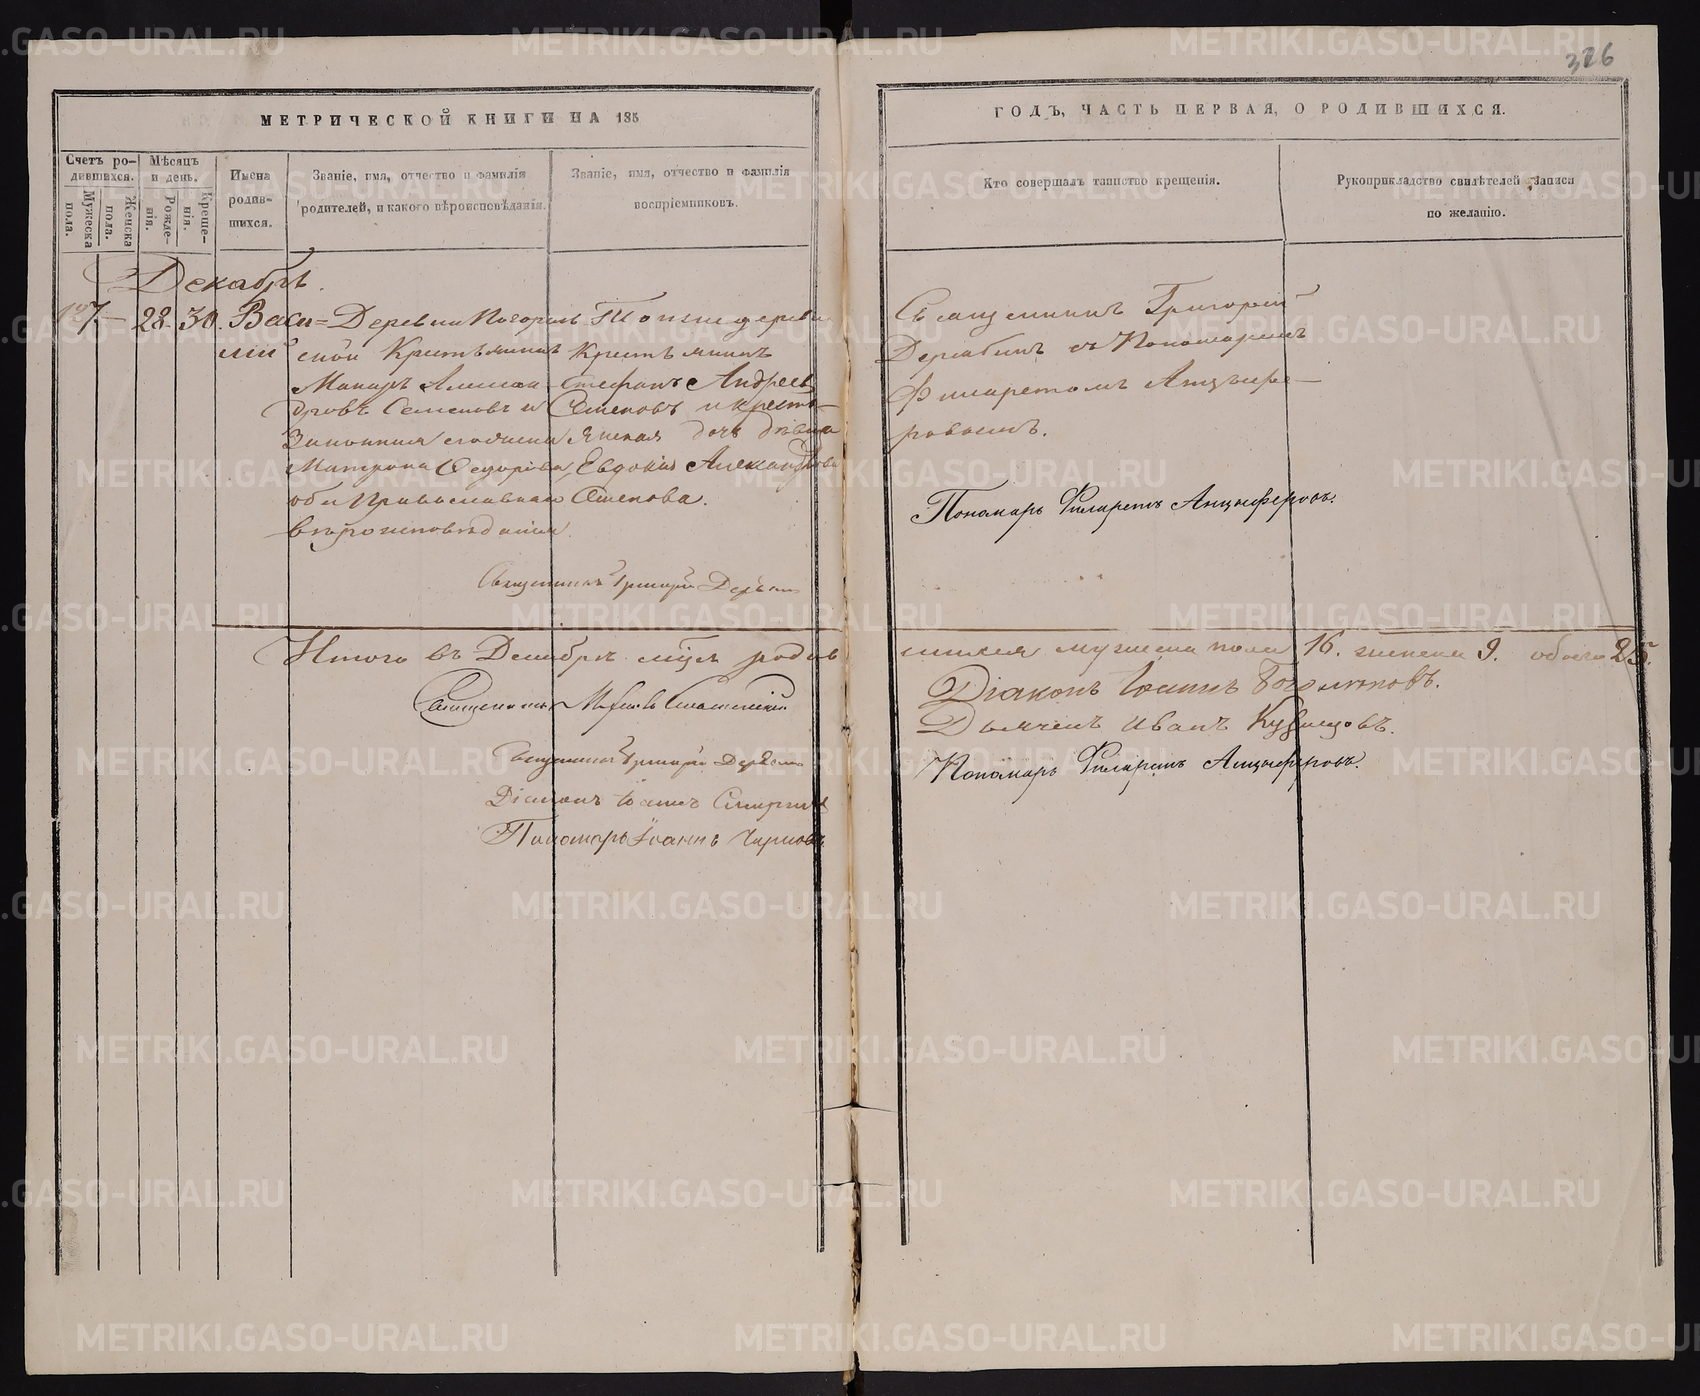 326
МЕТРИЧЕСКОЙ КНИГИ НА 185
ГОДЪ, ЧАСТЬ ПЕРВАЯ, О РОДИВШИХСЯ.
Счетъ ро-
дившихся.
Мужеска
пола.
Женска
пола.
Мѣсяцъ
и день.
Рожде-
нія.
Креще-
нія.
Имена
родив-
шихся.
Званіе, имя, отчество и фамилія
родителей, и какого вѣроисповѣданія.
Званіе, имя, отчество и фамилія
воспріемниковъ.
Кто совершалъ таинство крещенія.
Рукоприкладство свидѣтелей записи
по желанію.
Декабрь.
127. — 28. 30. Васи=
лій
Деревни
ской Крестьянинъ
Макаръ Алексан
дровъ Семеновъ и
Законная его жена
Матрона Ѳедорова,
оба Православнаго
вѣроисповѣданія.
Тойже деревни
Крестьянинъ
Стефанъ Андреевъ
Семеновъ и кресть-
янская дочь дѣвица
Евдокія Александрова
Семенова.
Священникъ Григорій
Священникъ Григорій
Дерябинъ съ Пономаремъ
Филаретомъ Анцыфе-
ровымъ.
Пономарь Филаретъ Анцыферовъ.
Итого въ Декабрѣ мцѣ родив
шихся мужеска пола 16. женска 9. обоего 25.
Священникъ
Діаконъ Іоаннъ
Священникъ Григорій
Дьячекъ Иванъ Кузнецовъ.
Діаконъ Іоаннъ
Пономарь Филаретъ Анцыферовъ.
Пономарь Іоаннъ
METRIKI.GASO-URAL.RU